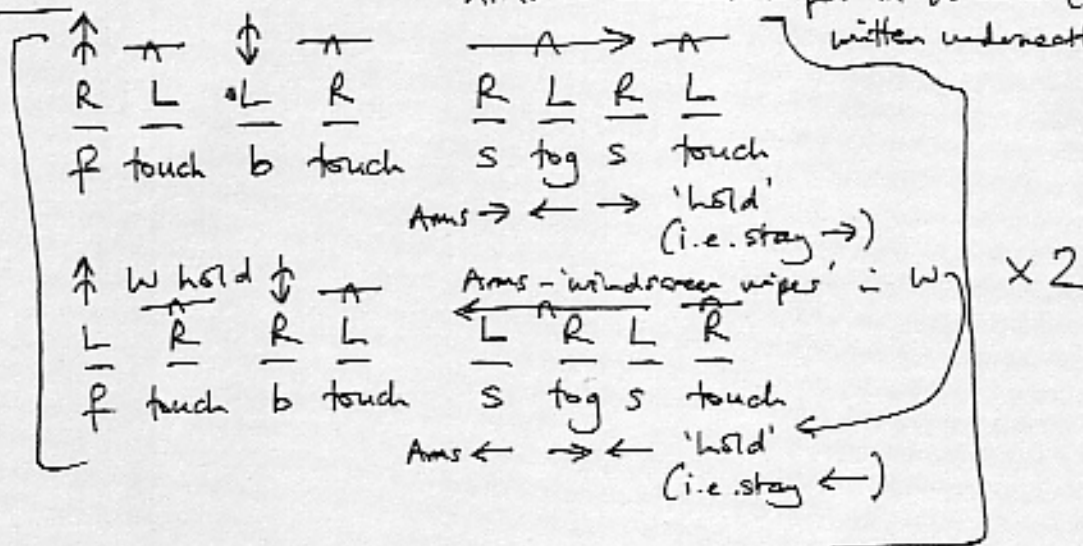 written underneath
R L L R R L R L
f touch b touch s tog s touch
Arms → ← → 'hold'
(i.e. stay →)
W hold Arms - 'windscreen wipers' in W
L R R L L R L R
f touch b touch s tog s touch
Arms ← → ← 'hold'
(i.e. stay ←)
x 2